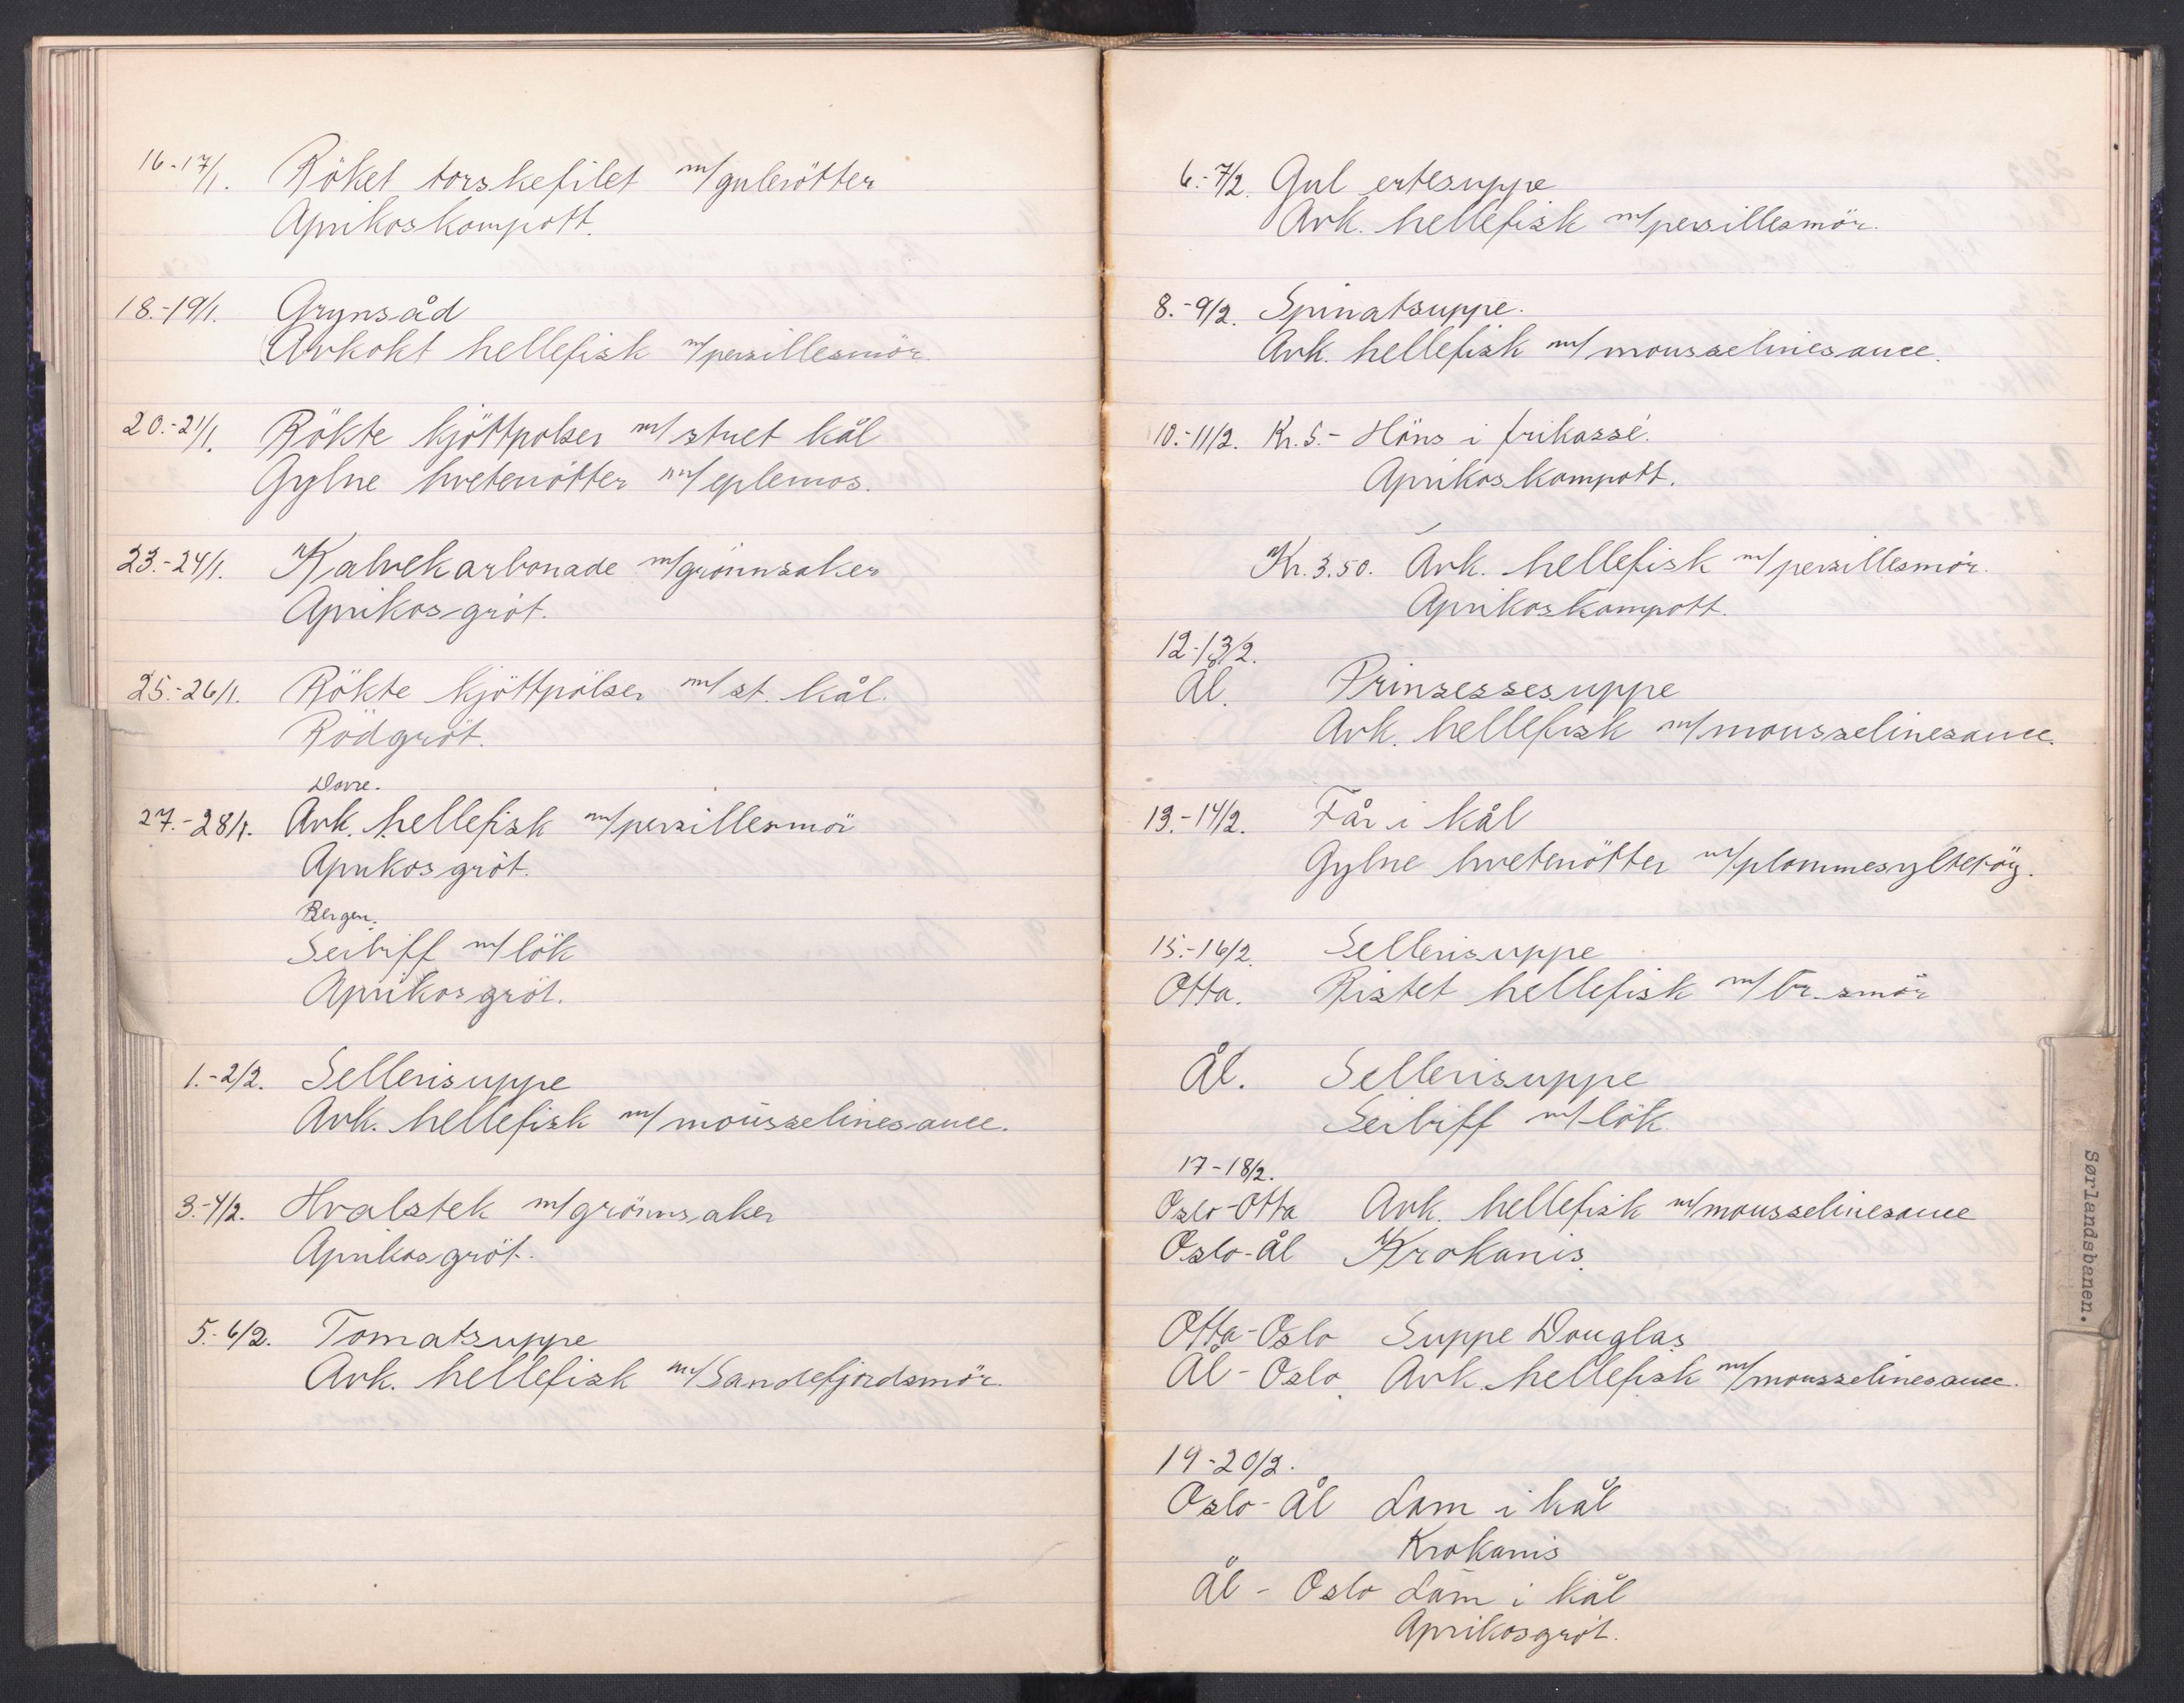 16-17/1. Röket torskefilet m/gulerötter
Aprikoskompott.
18.-19/1. Grynsåd
Avkokt hellefisk m/persillesmör.
20.-21/1. Rökte kjöttpölser m/stuet kål
Gylne hvetenötter m/eplemos.
23.-24/1. Kalvekarbonade m/grönnsaker
Aprikosgröt.
25.-26/1. Rökte kjöttpölser m/st. kål.
Rödgröt.
Dovre.
27.-28/1. Avk. hellefisk m/persillesmör
Aprikosgröt.
Bergen.
Seibiff m/lök
Aprikosgröt.
1.-2/2. Sellerisuppe
Avk. hellefisk m/mousselinesauce.
3.-4/2. Hvalstek m/grönnsaker
Aprikosgröt.
5.-6/2. Tomatsuppe
Avk. hellefisk m/Sandefjordsmör.
6.-7/2. Gul ertesuppe
Avk. hellefisk m/persillesmör.
8.-9/2. Spinatsuppe.
Avk. hellefisk m/mousselinesauce.
10.-11/2. Kr. 5.- Höns i frikassé.
Aprikoskompott.
Kr. 3.50. Avk. hellefisk m/persillesmör.
Aprikoskompott.
12-13/2.
Ål. Prinsessesuppe
Avk. hellefisk m/mousselinesauce.
13.-14/2. Får i kål
Gylne hvetenötter m/plommesyltetöy.
15.-16/2. Sellerisuppe
Otta. Ristet hellefisk m/br. smör
Ål. Sellerisuppe
Seibiff m/lök
17-18/2.
Oslo-Otta Avk. hellefisk m/mousselinesauce
Oslo-Ål Krokanis.
Otta-Oslo Suppe Douglas
Ål-Oslo. Avk. hellefisk m/mousselinesauce.
19-20/2.
Oslo-Ål Lam i kål
Krokanis
Ål - Oslo Lam i kål
Aprikosgröt.
Sørlandsbanen.